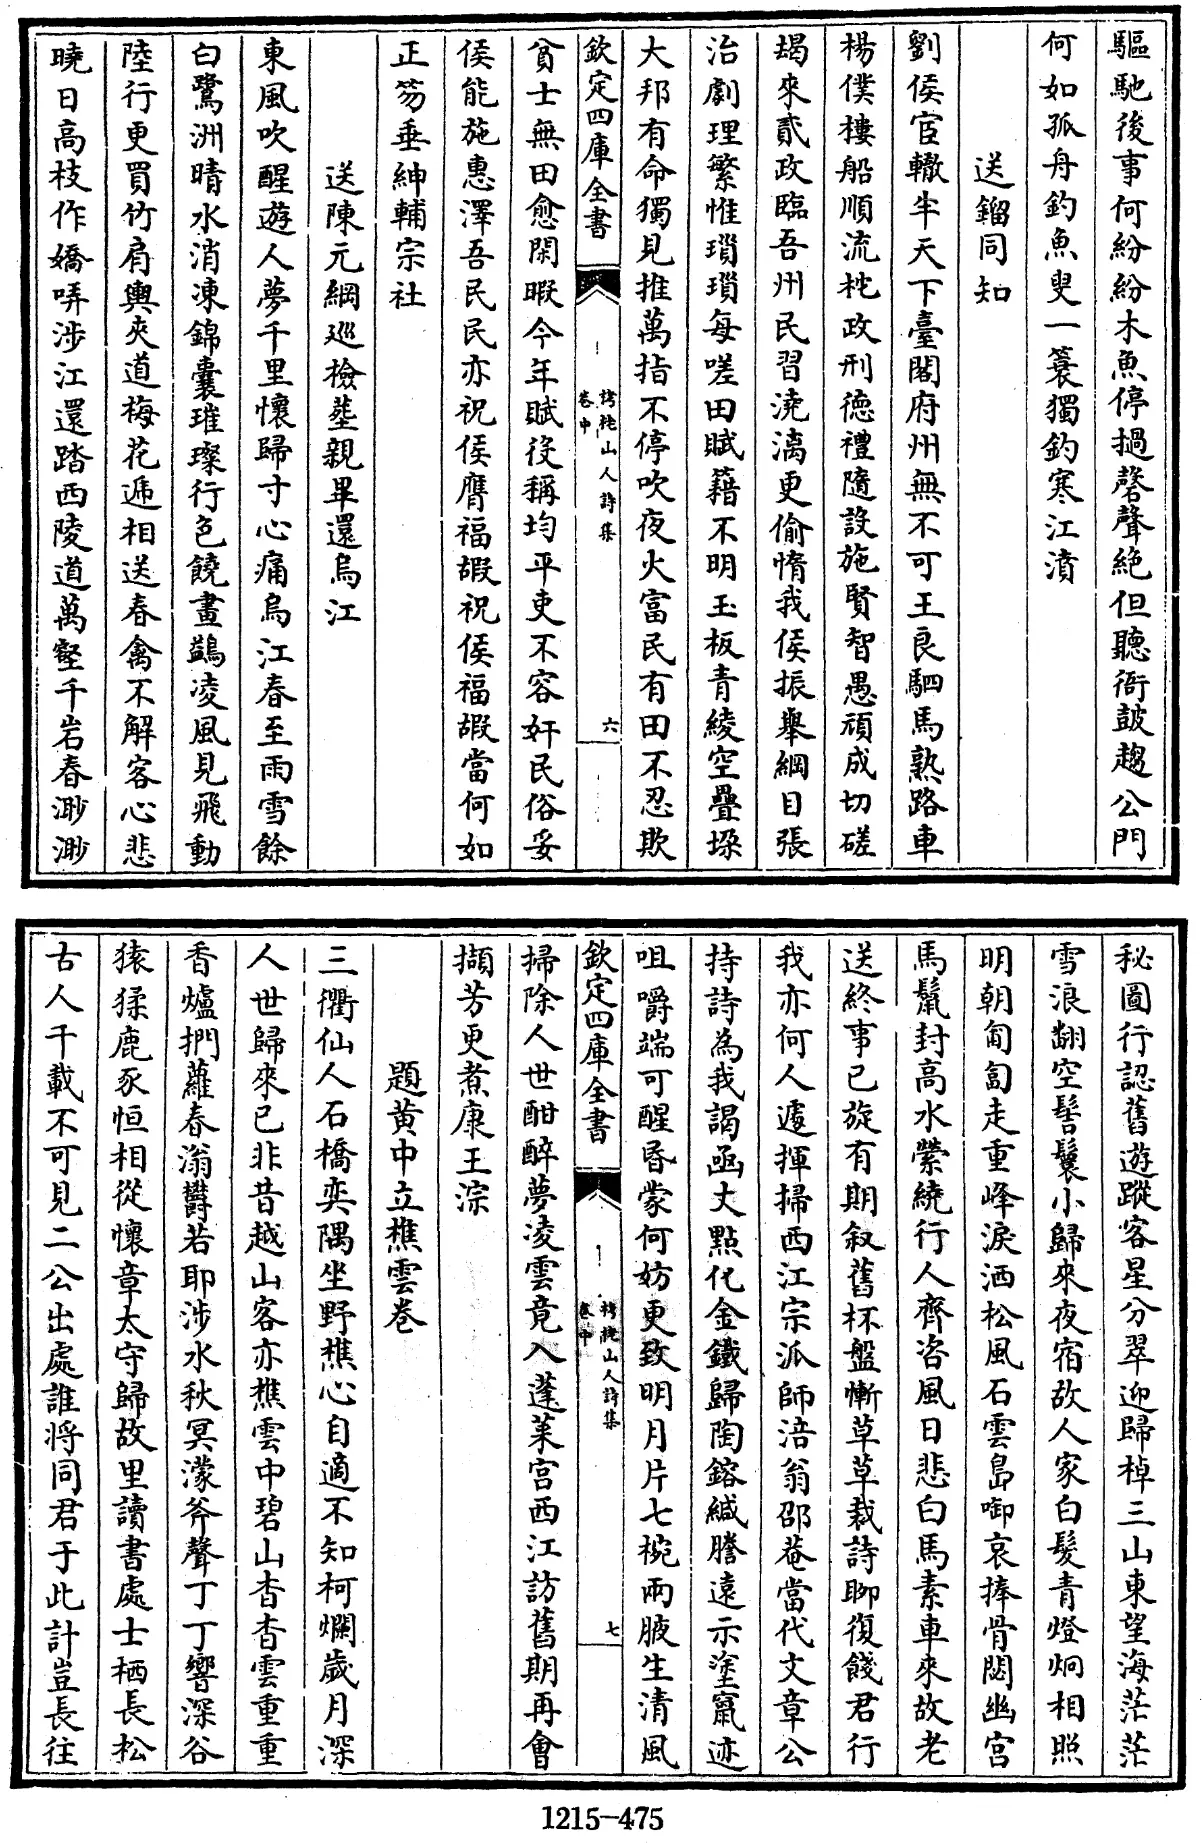 驅馳後事何紛紛木魚停撾磬聲絶但聽衙鼓趨公門
何如孤舟釣魚叟一簑獨釣寒江濆
送鎦同知
劉侯宦轍半天下臺閣府州無不可王良駟馬熟路車
楊僕樓船順流柁政刑德禮隨設施賢智愚頑成切磋
朅來貳政臨吾州民習澆漓更偷惰我侯振舉綱目張
治劇理繁惟瑣瑣每嗟田賦籍不明玉板青綾空疊垛
大邦有命獨見推萬指不停吹夜火富民有田不忍欺
欽定四庫全書
栲栳山人詩集
卷中
六
貧士無田愈閑暇今年賦役稱均平吏不容奸民俗妥
侯能施惠澤吾民民亦祝侯膺福嘏祝侯福嘏當何如
正笏垂紳輔宗社
送陳元綱巡檢塟親畢還烏江
東風吹醒遊人夢千里懷歸寸心痛烏江春至雨雪餘
白鷺洲晴水消凍錦囊璀璨行色饒畫鷁凌風見飛動
陸行更買竹肩輿夾道梅花遞相送春禽不解客心悲
曉日高枝作嬌哢涉江還踏西陵道萬壑千岩春渺渺
秘圖行認舊遊蹤客星分翠迎歸棹三山東望海茫茫
雪浪翻空髻鬟小歸來夜宿故人家白髮青燈炯相照
明朝匍匐走重峰淚洒松風石雲島啣哀捧骨閟幽宮
馬鬛封高水縈繞行人齊咨風日悲白馬素車來故老
送終事已旋有期叙舊杯盤慚草草裁詩聊復餞君行
我亦何人遽揮掃西江宗派師涪翁邵菴當代文章公
持詩為我謁函丈點化金鐵歸陶鎔緘謄遠示塗竄迹
咀嚼端可醒昏蒙何妨更致明月片七椀兩腋生清風
欽定四庫全書
栲栳山人詩集
卷中
七
掃除人世酣醉夢凌雲竟入蓬萊宫西江訪舊期再會
擷芳更煮康王淙
題黄中立樵雲巻
三衢仙人石橋奕隅坐野樵心自適不知柯爛歲月深
人世歸來已非昔越山客亦樵雲中碧山杳杳雲重重
香爐捫蘿春滃欝若耶涉水秋冥濛斧聲丁丁響深谷
猿猱鹿豕恒相從懷章太守歸故里讀書處士栖長松
古人千載不可見二公出處誰將同君于此計豈長往
1215-475